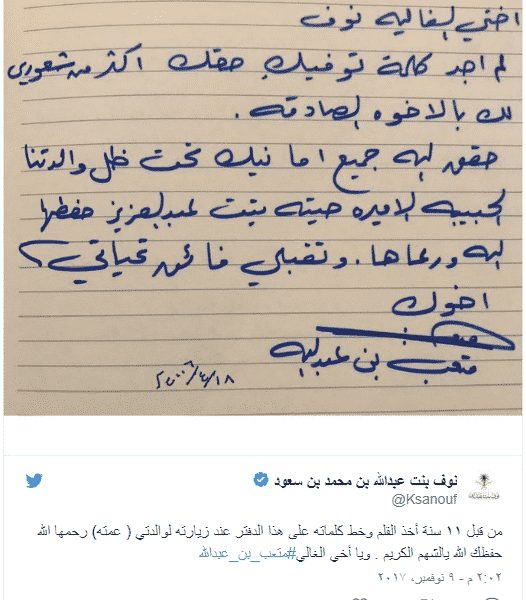 اختي الغاليه نوف
لم اجد كلمة توفيك حقك اكثر من شعوري
لك بالاخوه الصادقه .
حقق الله جميع امانيك تحت ظل والدتنا
الحبيبه الاميره صيته بنت عبدالعزيز حفظها
الله ورعاها . وتقبلي فائق تحياتي
اخوك
متعب بن عبدالله
٢٠٠٦/٤/١٨
نوف بنت عبدالله بن محمد بن سعود
@Ksanouf
من قبل ١١ سنة أخذ القلم وخط كلماته على هذا الدفتر عند زيارته لوالدتي ( عمته) رحمها الله
حفظك الله يالشهم الكريم . ويا أخي الغالي#متعب_بن_عبدالله
٢:٠٢ م - ٩ نوفمبر، ٢٠١٧